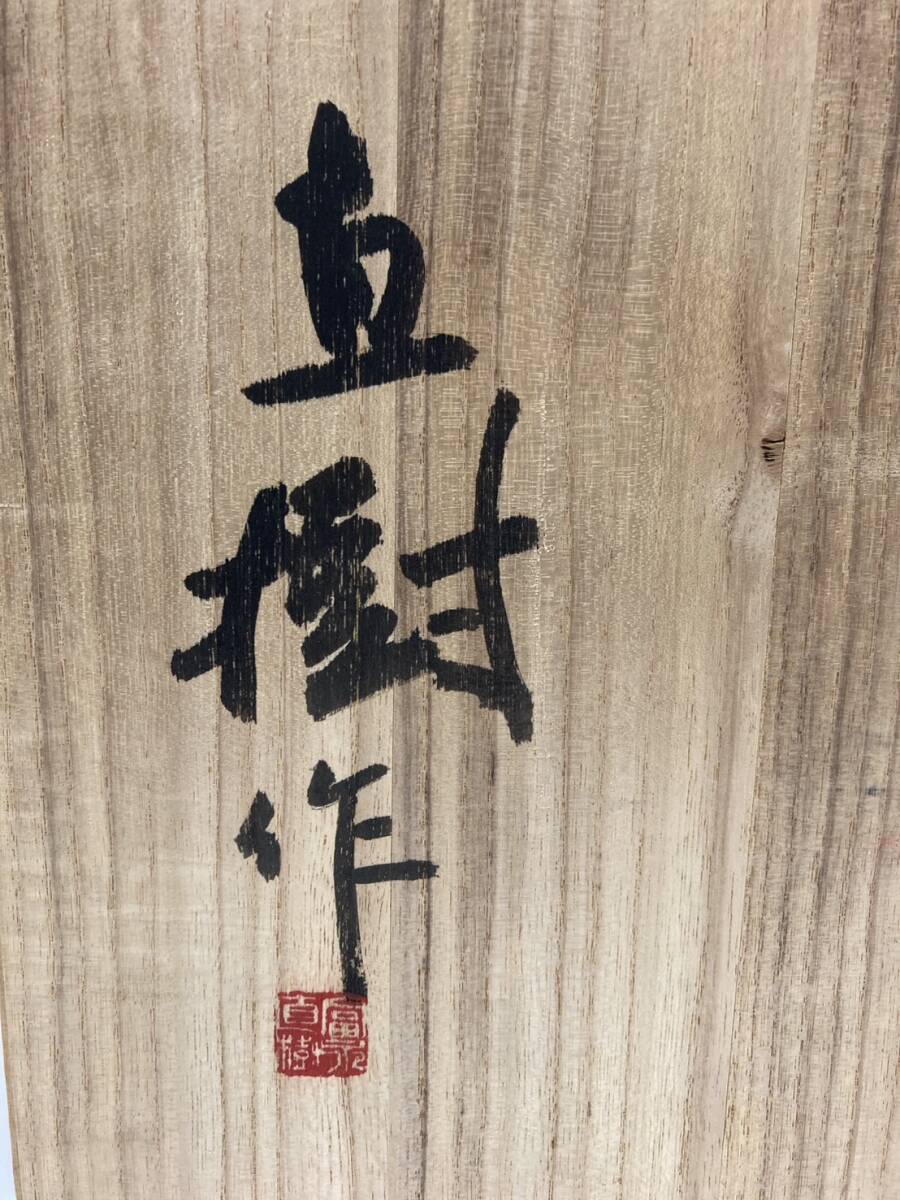 直樹作
富永
直樹